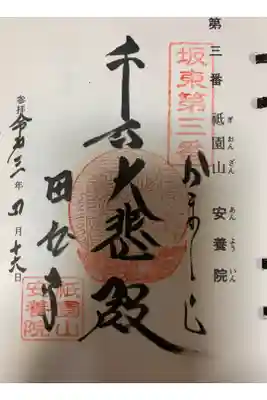 第三番　祗園山　安養院
ぎおんざん　あんよういん
坂東第三番
かまくら
千手大悲殿
田代寺
参拝　令和三年四月十六日
祗園山安養院